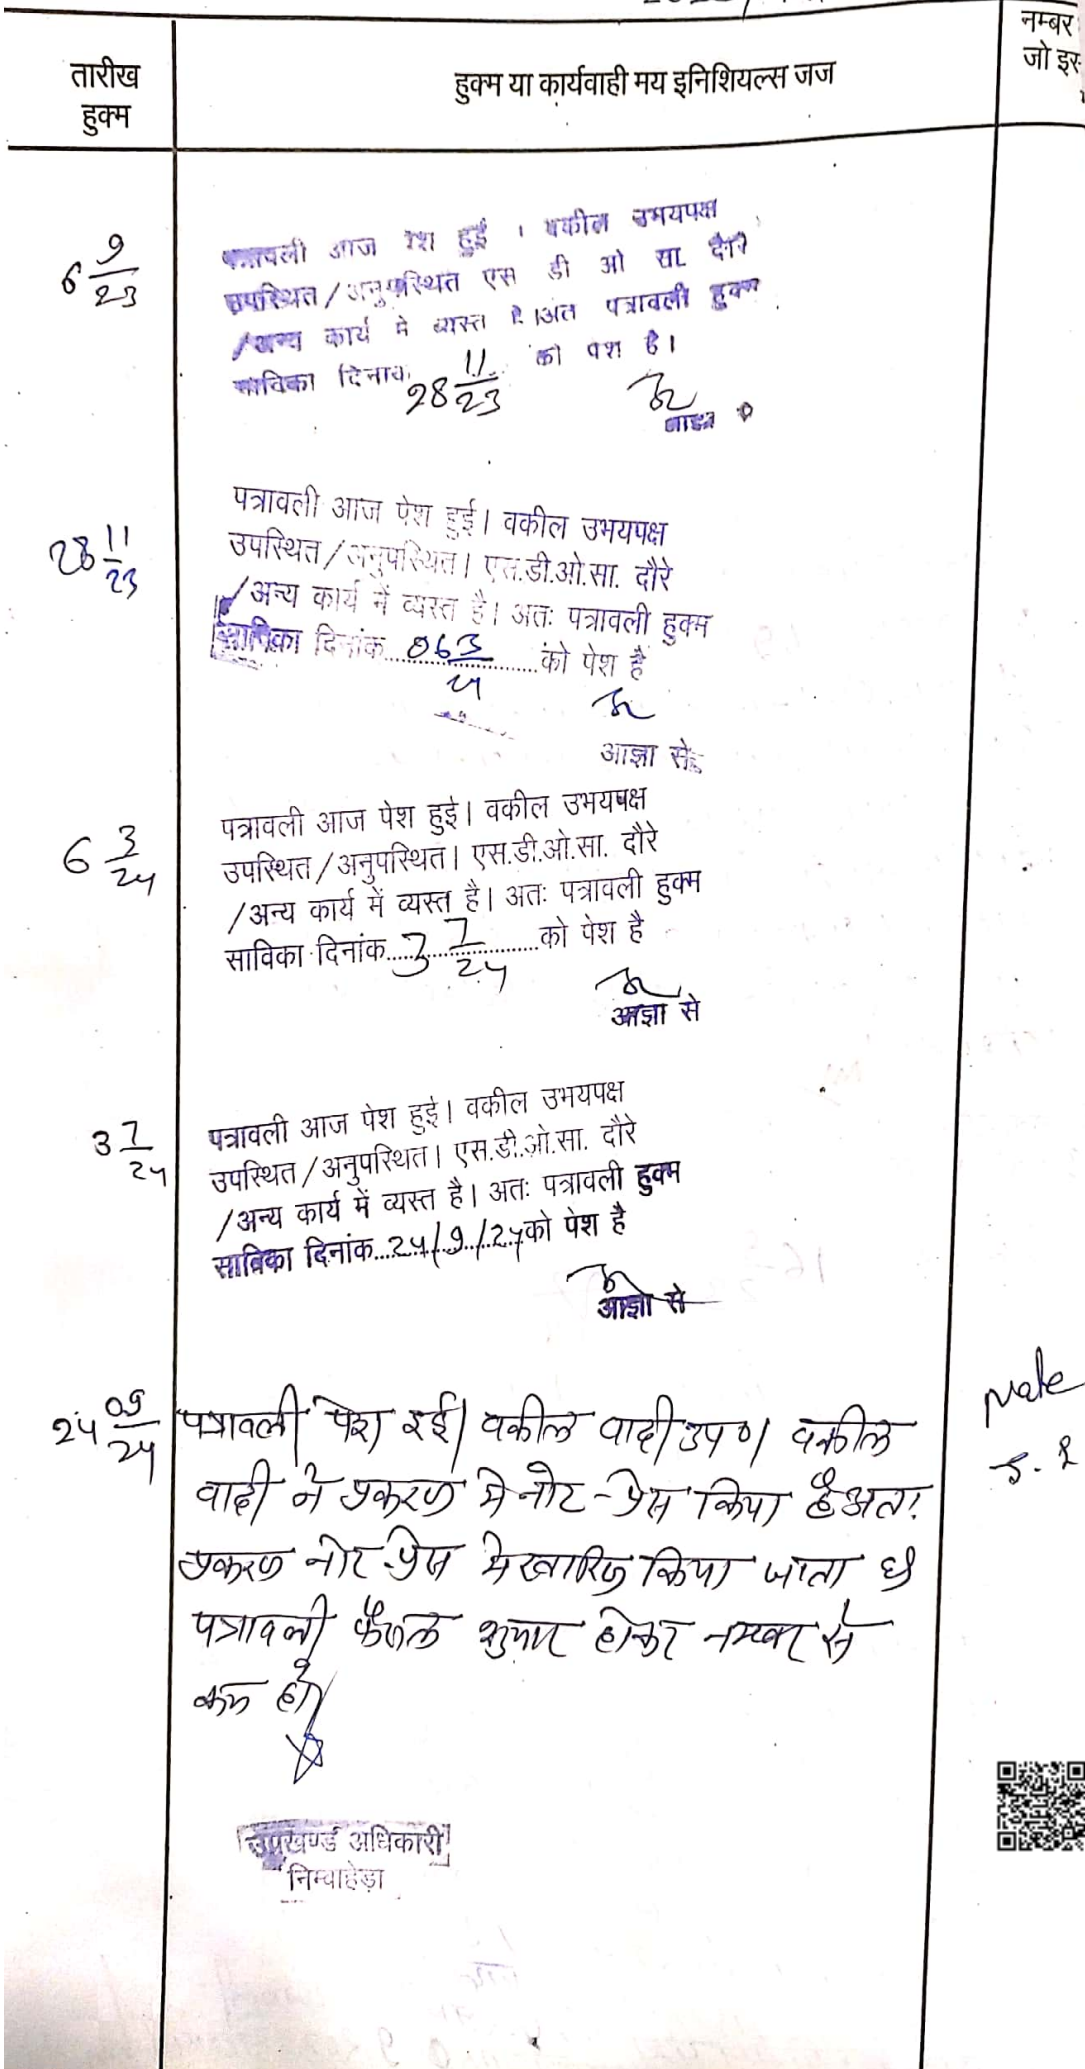 नम्बर
जो इस
तारीख
हुक्म
हुक्म या कार्यवाही मय इनिशियल्स जज
6 9/23
पत्रावली आज पेश हुई । वकील उभयपक्ष
उपस्थित/अनुपस्थित एस डी ओ सा. दौरे
/अन्य कार्य मे व्यस्त है।अत पत्रावली हुक्म
साविका दिनांक 28 11/23 को पेश है।
28 11/23
पत्रावली आज पेश हुई। वकील उभयपक्ष
उपस्थित/अनुपस्थित। एस.डी.ओ.सा. दौरे
/अन्य कार्य में व्यस्त है। अतः पत्रावली हुक्म
साविका दिनांक..06 3/24..को पेश है
आज्ञा से
6 3/24
पत्रावली आज पेश हुई। वकील उभयपक्ष
उपस्थित/अनुपस्थित। एस.डी.ओ.सा. दौरे
/अन्य कार्य में व्यस्त है। अतः पत्रावली हुक्म
साविका दिनांक..3 7/24..को पेश है
आज्ञा से
3 7/24
पत्रावली आज पेश हुई। वकील उभयपक्ष
उपस्थित/अनुपस्थित। एस.डी.ओ.सा. दौरे
/अन्य कार्य में व्यस्त है। अतः पत्रावली हुक्म
साविका दिनांक...24/9/24को पेश है
आज्ञा से
24 09/24
पत्रावली पेश हुई। वकील वादी उप०। वकील
वादी ने प्रकरण मे नोट-प्रेस किया है अतः
प्रकरण नोट-प्रेस मे खारिज किया जाता है
पत्रावली फैसल शुमार होकर नम्बर से
कम हो।
उपखण्ड अधिकारी
निम्बाहेड़ा